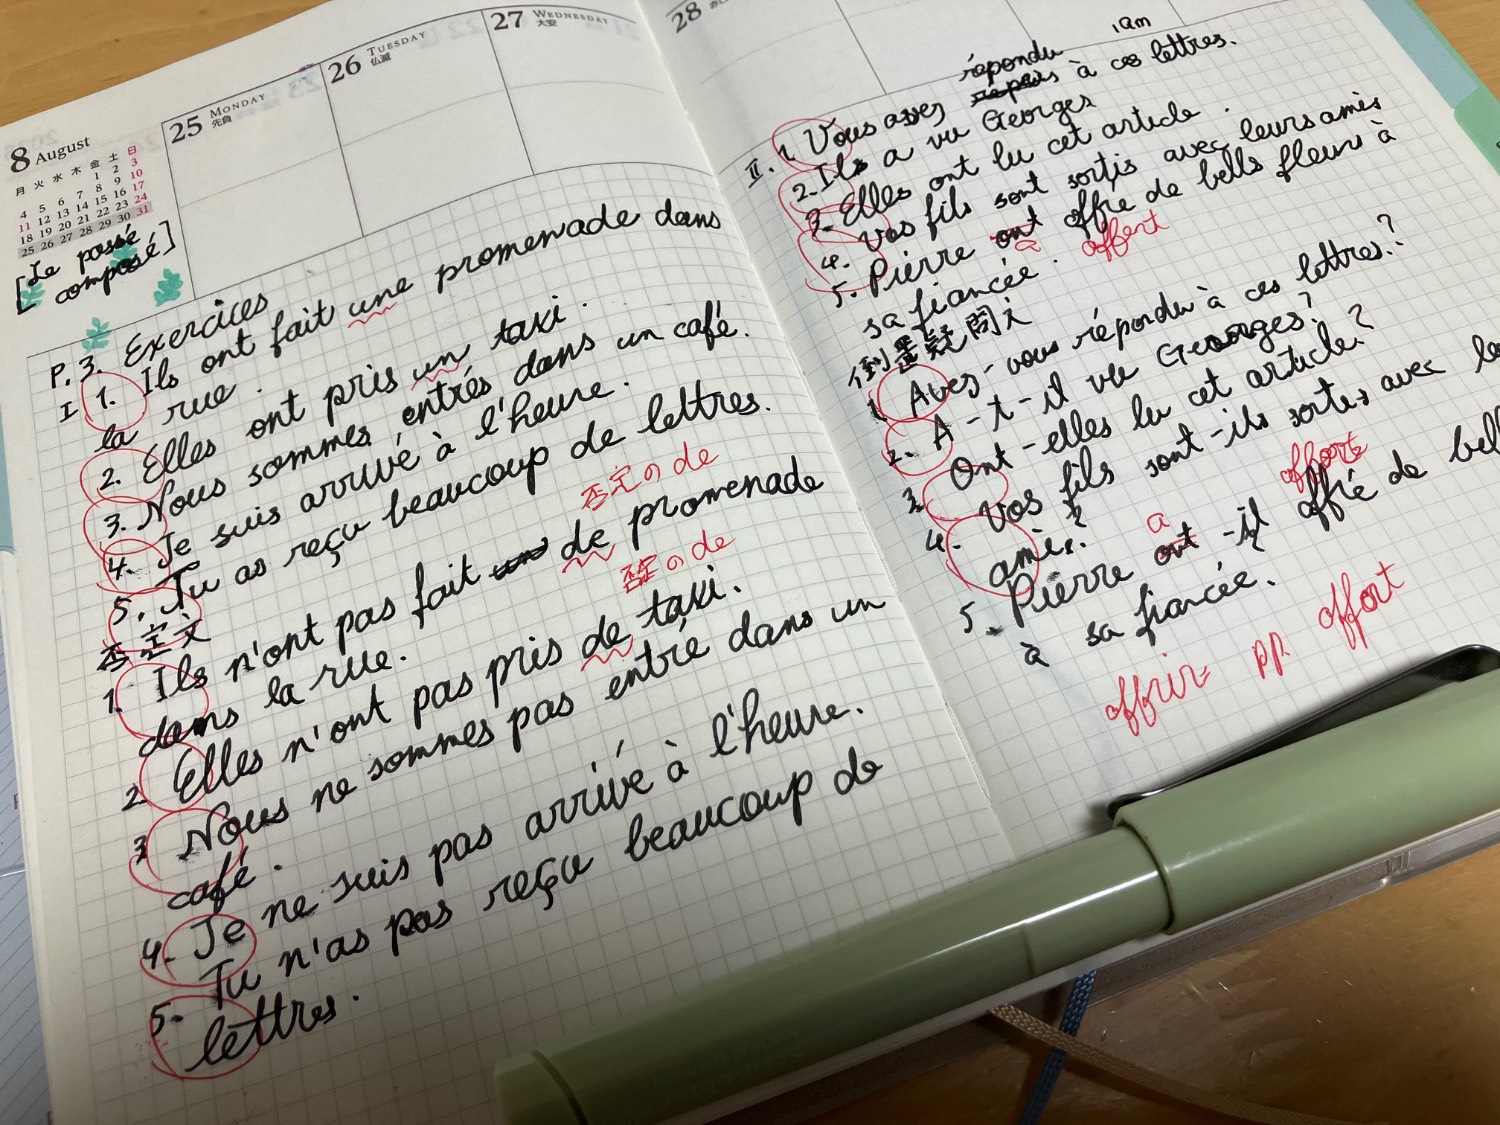 8 August
月 火 水 木 金 土 日
1 2 3
4 5 6 7 8 9 10
11 12 13 14 15 16 17
18 19 20 21 22 23 24
25 26 27 28 29 30 31
25 MONDAY
先負
26 TUESDAY
仏滅
27 WEDNESDAY
大安
28
[Le passé
composé]
P. 3. Exercices
I 1. Ils ont fait une promenade dans
la rue.
2. Elles ont pris un taxi.
3. Nous sommes entrés dans un café.
4. Je suis arrivé à l'heure.
5. Tu as reçu beaucoup de lettres.
否定文
否定のde
1. Ils n'ont pas fait de promenade
dans la rue.
否定のde
2 Elles n'ont pas pris de taxi.
3 Nous ne sommes pas entré dans un
café.
4. Je ne suis pas arrivé à l'heure.
5. Tu n'as pas reçu beaucoup de
lettres.
1am
répondu
II. 1. Vous avez à ces lettres.
2. Ils a vu Georges
3. Elles ont lu cet article.
4. Vos fils sont sortis avec leurs amis
5. Pierre ont offie de bells fleurs à
a offert
sa fiancée.
倒置疑問文
1 Avez-vous répondu à ces lettres?
2. A-t-il vu Georges?
3 Ont-elles lu cet article?
4. Vos fils sont-ils sortes avec
amis?
a offort
5. Pierre ont-il offié de bell
à sa fiancée.
offrir pp. offort